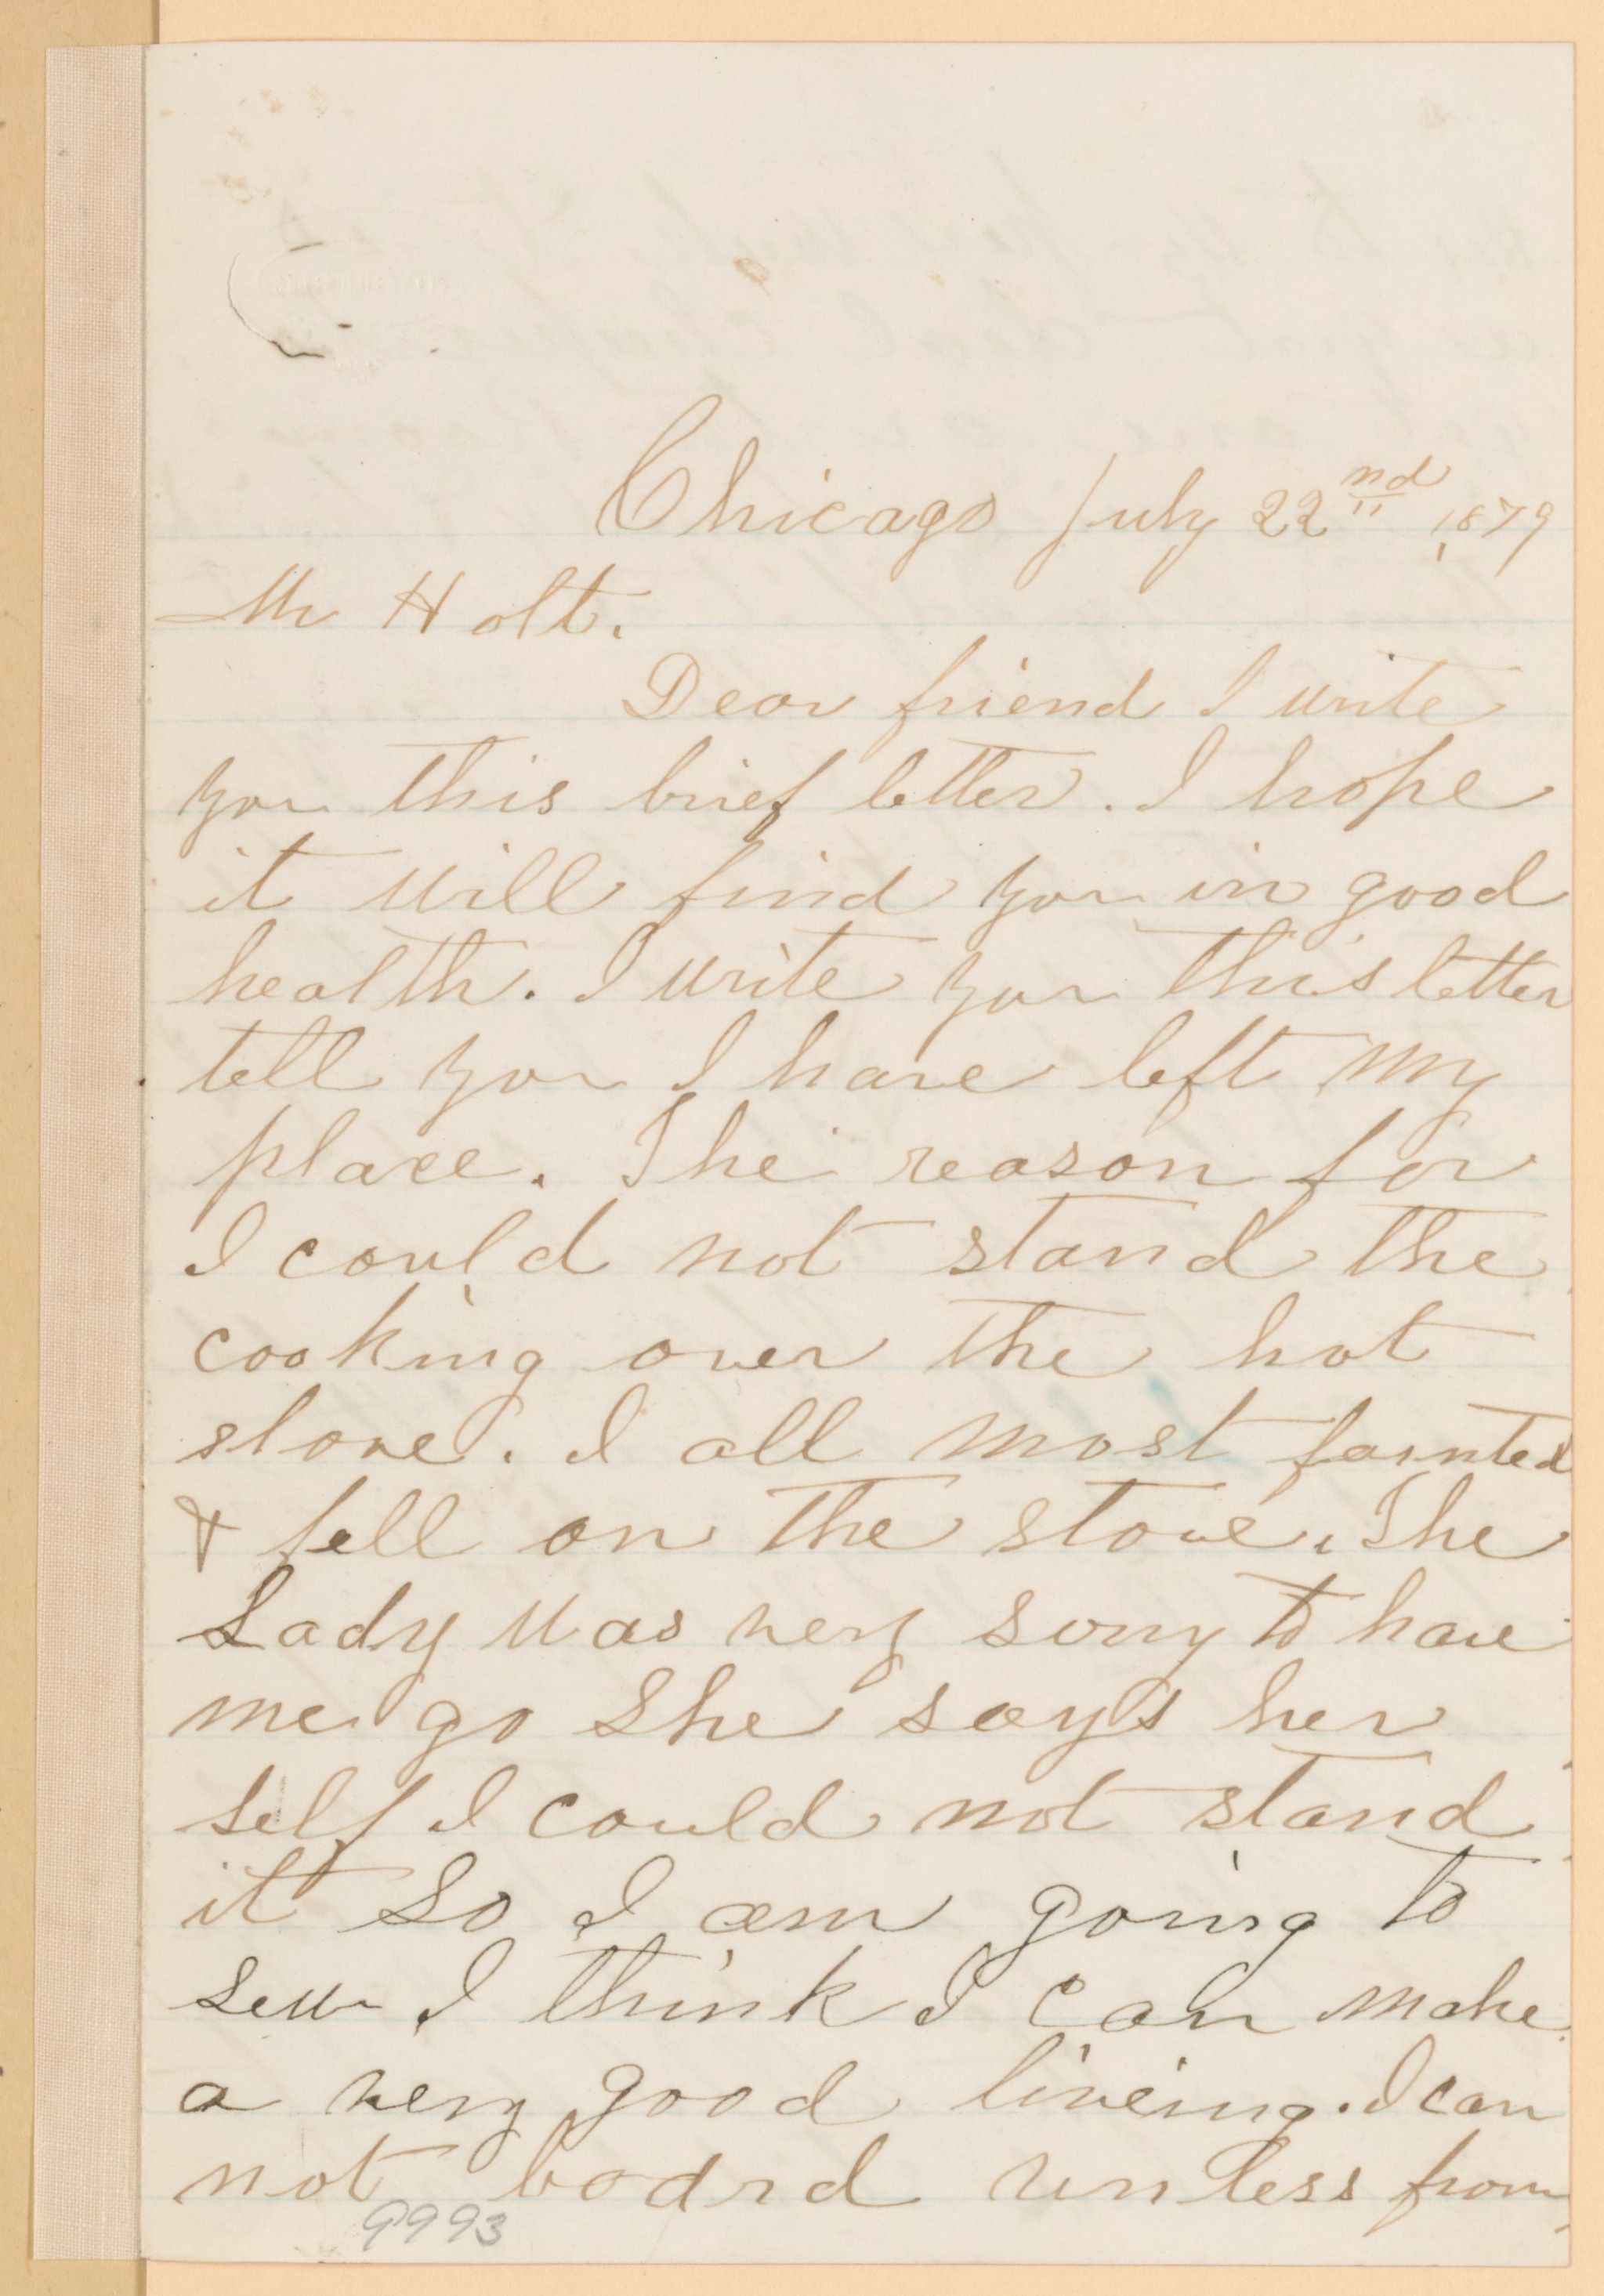 Chicago July 22nd 1879
Mr Holt.
Dear friend I write
you this brief letter. I hope
it will find you in good
health. I write you this letter
tell you I have left my
place. The reason for
I could not stand the
cooking over the hot
stove. I all most fainted
& fell on the stove. The
Lady was very sorry to have
me go She says her
self I could not stand
it So I am going to
sew I think I can make
a very good liveing. I can
not board unless from
9993